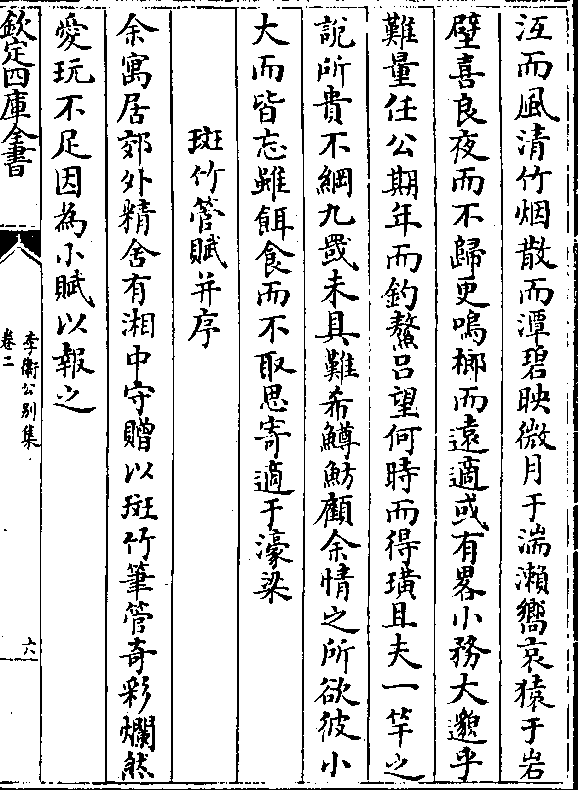 沍而風清竹烟散而潭碧映微月于湍瀨嚮哀猿于岩
壁喜良夜而不歸更鳴榔而遠適或有畧小務大邈乎
難量任公期年而釣鰲呂望何時而得璜且夫一竿之
說所貴不綱九罭未具難希鱒魴顧余情之所欲彼小
大而皆忘雖餌食而不取思寄適于濠梁
斑竹管賦并序
余寓居郊外精舍有湘中守贈以斑竹筆管奇彩爛然
愛玩不足因為小賦以報之
欽定四庫全書
李衛公別集
卷二
六